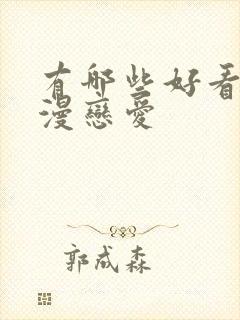 有哪些好看
漫戀愛
郭成森